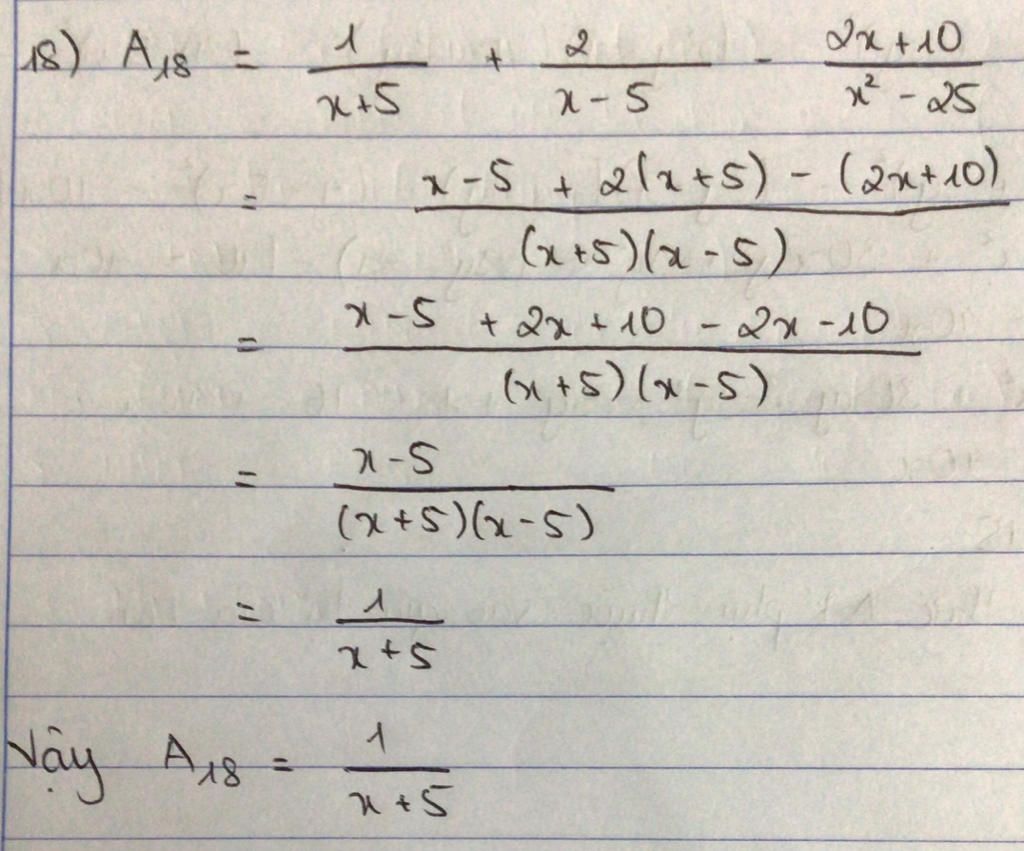 18) A₁₈ = \frac{1}{x+5} + \frac{2}{x-5} - \frac{2x+10}{x²-25}
= \frac{x-5 + 2(x+5) - (2x+10)}{(x+5)(x-5)}
= \frac{x-5 + 2x+10 - 2x-10}{(x+5)(x-5)}
= \frac{x-5}{(x+5)(x-5)}
= \frac{1}{x+5}
Vậy A₁₈ = \frac{1}{x+5}